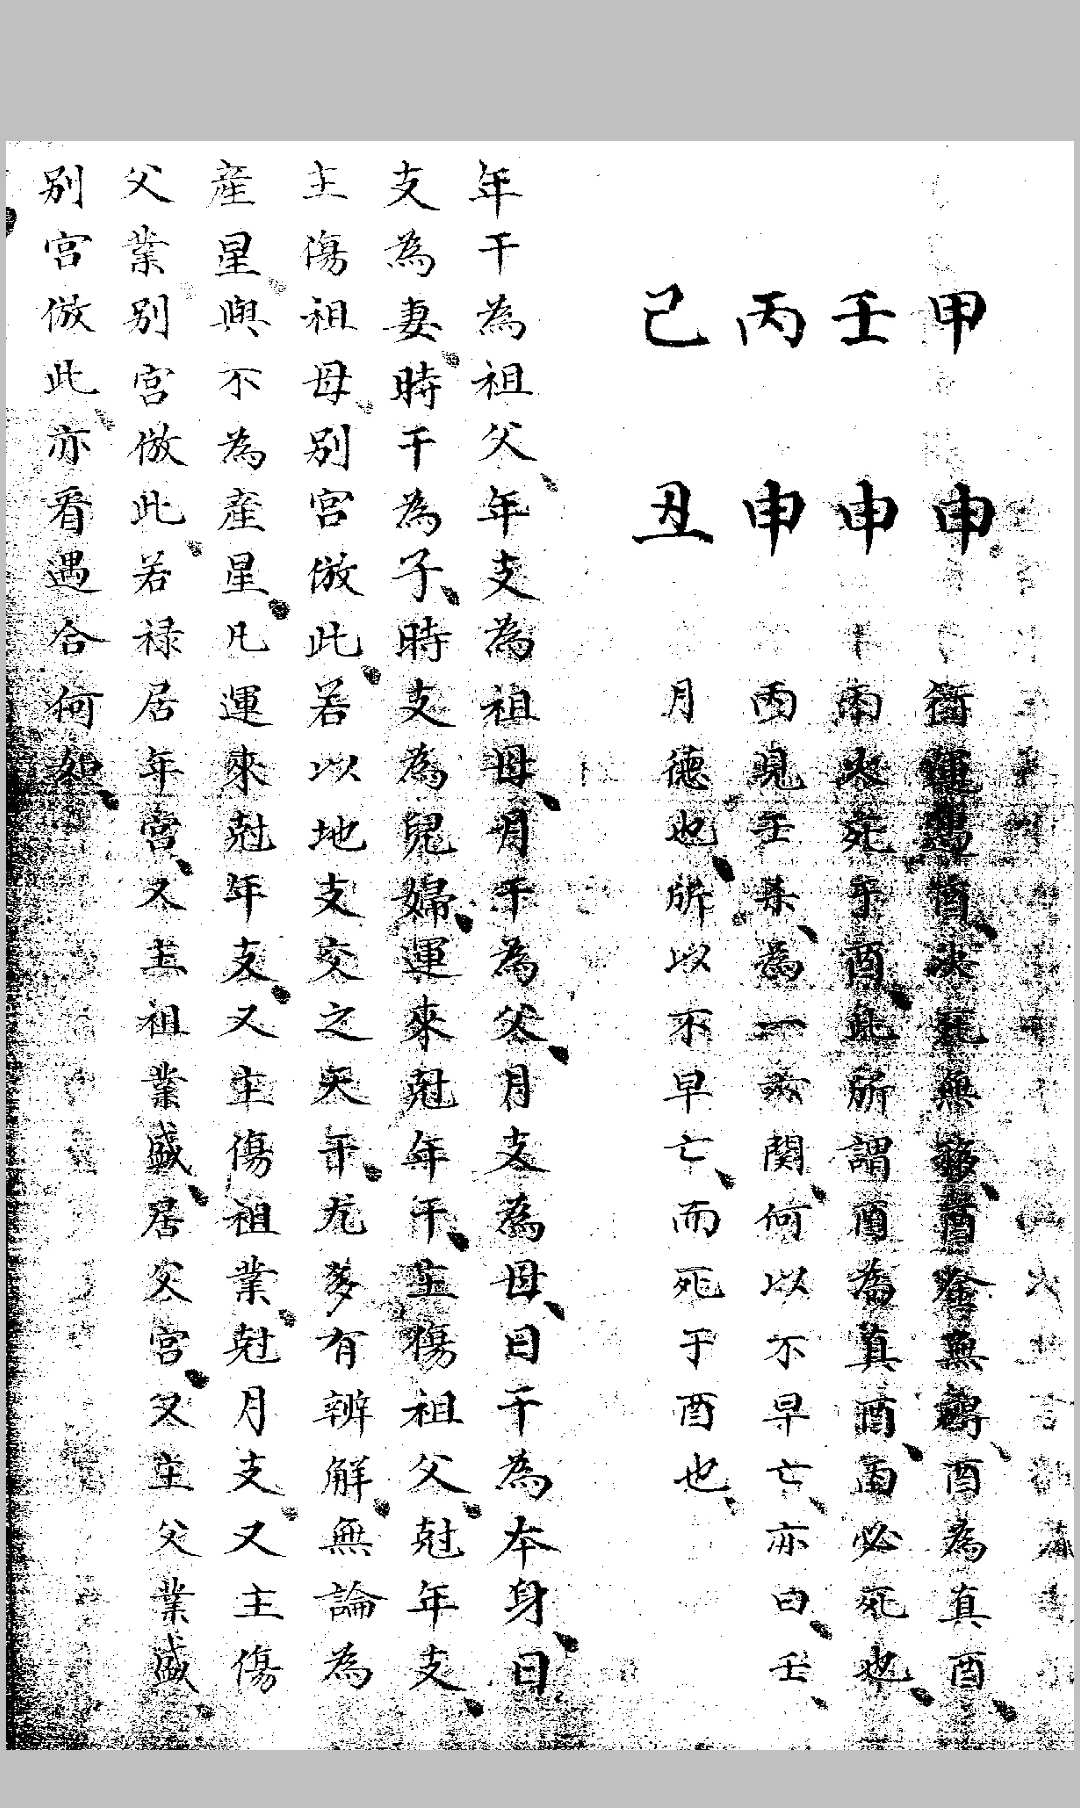 甲申 運遇酉決死無酉無酉為真酉
壬申 火死乎酉此所謂酉為真酉必死也
丙申 現壬為一関何以不早亡亦曰壬
己丑 月德也所以不早亡而死于酉也
年干為祖父年支為祖母月干為父月支為母日干為本身日
支為妻時干為子時支為兒婦運來尅年干主傷祖父尅年支
主傷祖母别宮倣此若以地支交之天干尤多有辨解無論為
産星與不為産星凡運來尅年支又主傷祖業尅月支又主傷
父業别宮倣此若禄居年宮又主祖業盛居父宮又主父業盛
别宮倣此亦看遇合何如